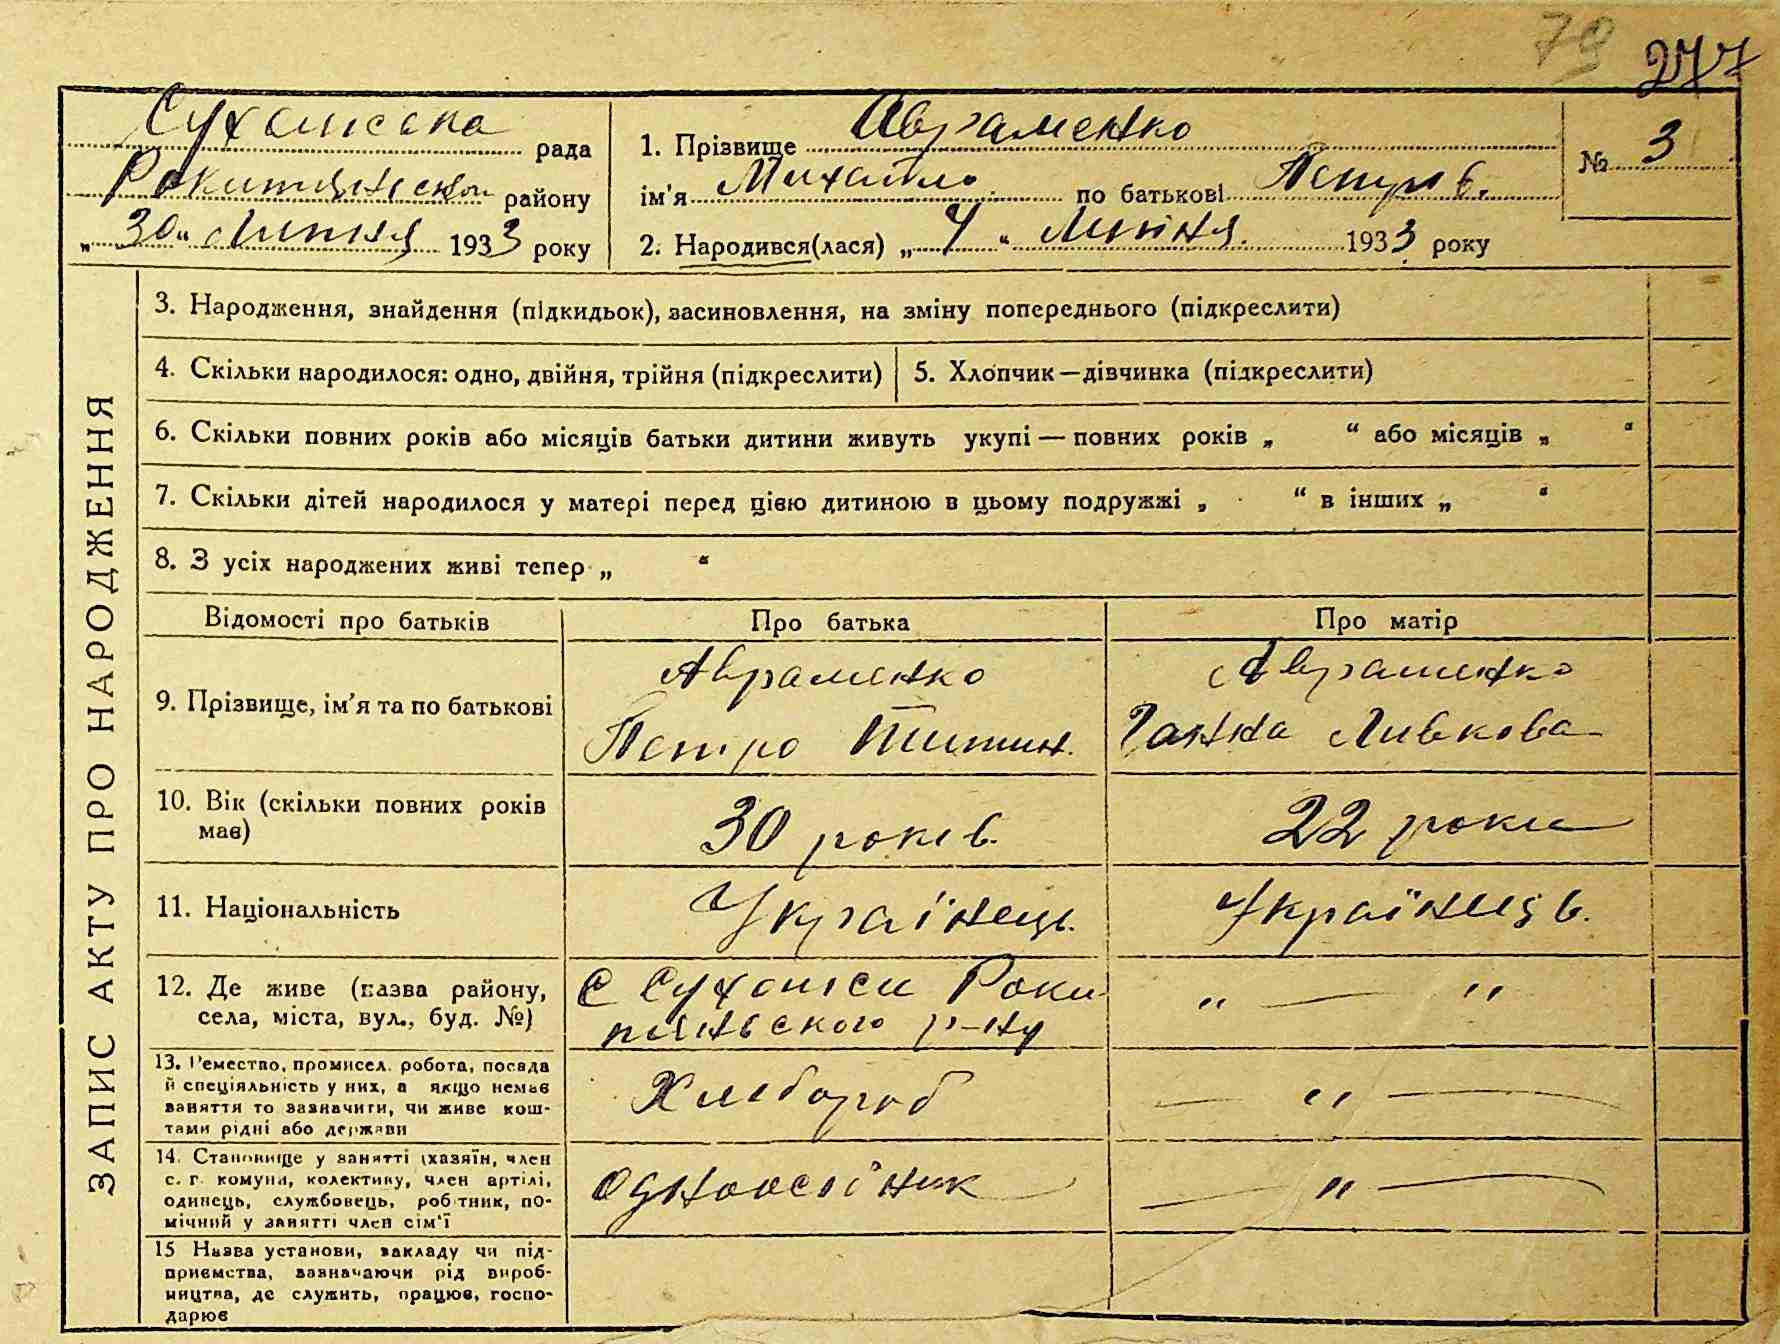 79 277
Сухониська рада
Рокитянськог району
„ 30 “ Липня 1933 року
1. Прізвище Авраменко
ім'я Михайло по батькові Петров.
2. Народився(лася) „ 4 “ Липня 1933 року
№ 3
ЗАПИС АКТУ ПРО НАРОДЖЕННЯ
3. Народження, знайдення (підкидьок), засиновлення, на зміну попереднього (підкреслити)
4. Скільки народилося: одно, двійня, трійня (підкреслити)
5. Хлопчик — дівчинка (підкреслити)
6. Скільки повних років або місяців батьки дитини живуть укупі — повних років „ “ або місяців „ “
7. Скільки дітей народилося у матері перед цією дитиною в цьому подружжі „ “ в інших „ “
8. З усіх народжених живі тепер „ “
Відомості про батьків Про батька Про матір
9. Прізвище, ім'я та по батькові
Авраменко
Петро
Авраменко
Ганна Ливкова
10. Вік (скільки повних років
має)
30 років.
22 роки
11. Національність
Українець.
Українець.
12. Де живе (назва району,
села, міста, вул., буд. №)
с Сухониси Роки
тянського р-ну
„ — „
13. Ремество, промисел, робота, посада
й спеціяльність у них, а якщо немає
заняття то зазначити, чи живе кош-
тами рідні або держави
Хлібороб
— „ —
14. Становище у занятті (хазяїн, член
с. г. комуни, колективу, член артілі,
одинець, службовець, робітник, по-
мічний у занятті член сім'ї
одноосібник
— „ —
15 Назва установи, закладу чи під-
приємства, зазначаючи рід вироб-
ництва, де служить, працює, госпо-
дарює